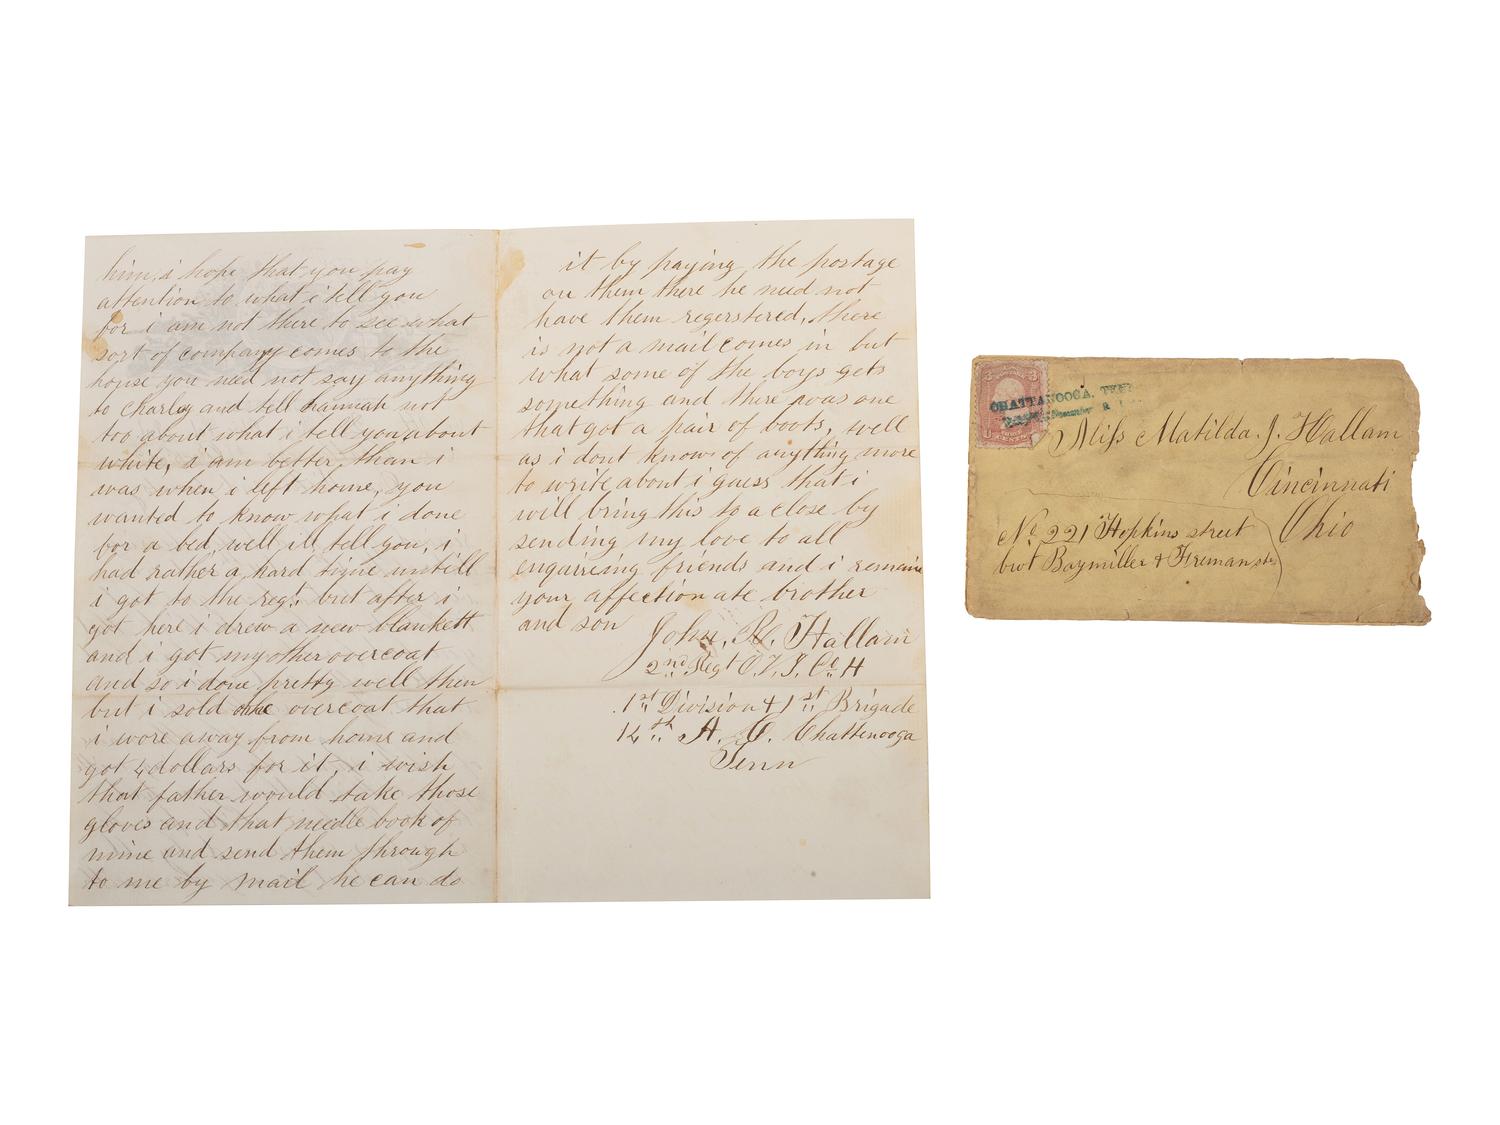 him, i hope that you pay
attention to what i tell you
for i am not there to see what
sort of company comes to the
house you need not say anything
to Charley and tell hannah not
too about what i tell you about
white, i am better, than i
was when i left home, you
wanted to know what i done
for a bed, well ill tell you, i
had rather a hard time untill
i got to the regt. but after i
got here i drew a new blankett
and i got my other overcoat
and so i done pretty well then
but i sold the overcoat that
i wore away from home and
got 4 dollars for it, i wish
that father would take those
gloves and that needle book of
mine and send them through
to me by mail he can do
it by paying the postage
on them there he need not
have them regerstered, there
is not a mail comes in but
what some of the boys gets
something and there was one
that got a pair of boots, well
as i dont know of anything more
to write about i guess that i
will bring this to a close by
sending my love to all
enquireing friends and i remain
your affectionate brother
and son John, R. Hallam
2nd Regt O.V.I. Co. H
1st Division & 1st Brigade
14th A. C. Chattenooga
Tenn
CHATTANOOGA, TEN
Miss Matilda. J. Hallam
Cincinnati
Ohio
No 221 Hopkins street
bwt Baymiller & Freman sts